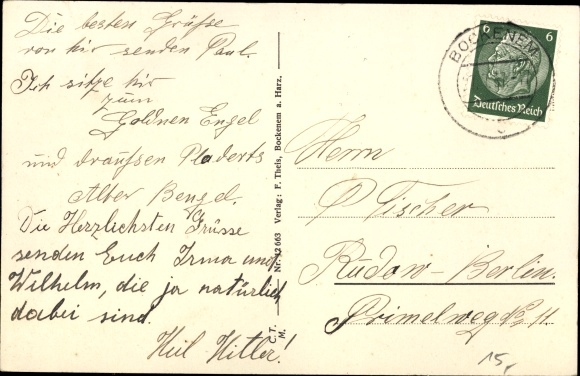 Die besten Grüße
von hir senden Paul.
Ich sitze hir
zum
Goldnen Engel
und draußen Pladerts
Alter Bengel.
Die Herzlichsten Grüsse
senden Euch Irma und
Wilhelm, die ja natürlich
dabei sind.
Heil Hitler!
C. T. M. Nr. 12663 Verlag: F. Theis, Bockenem a. Harz.
6 6
Deutsches Reich
BOCKENEM
Herrn
P Tischer
Rudow-Berlin.
Primelweg No 11.
15,